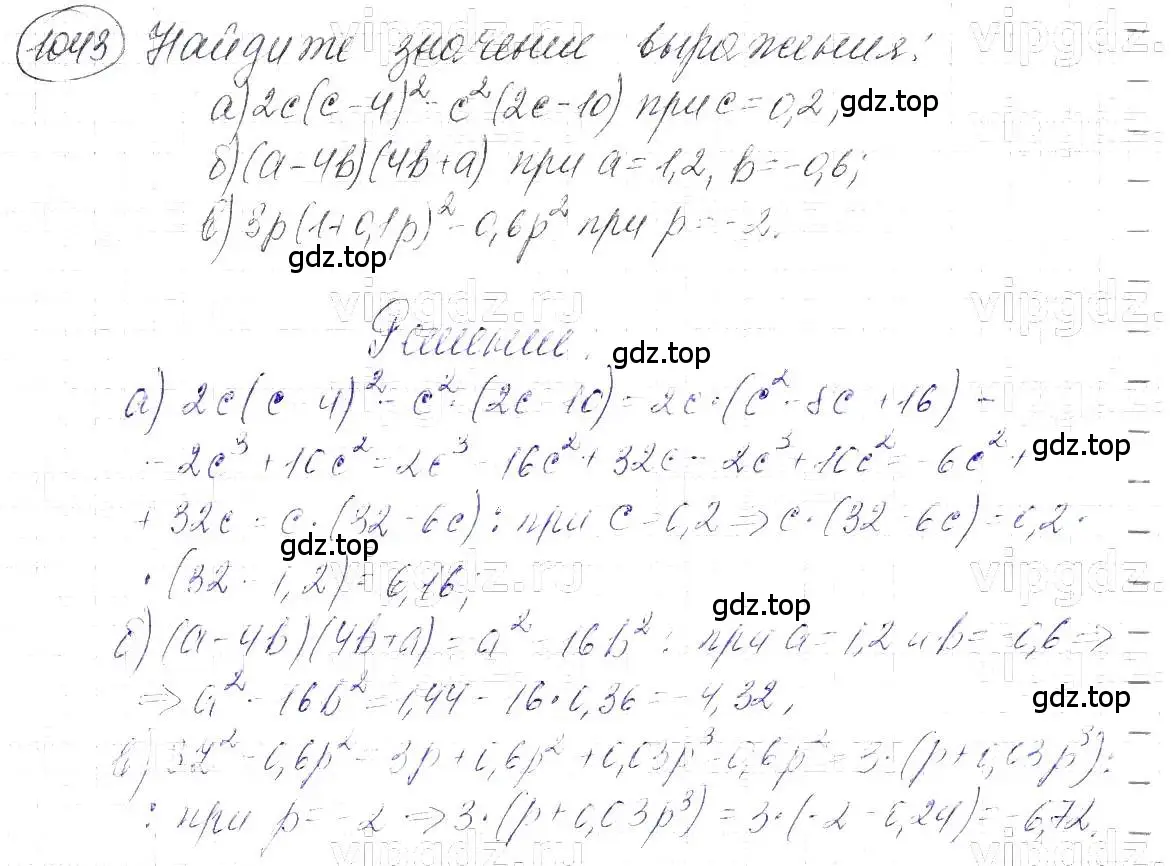 1043 Найдите значение выражения:
а) 2c(c-4)² - c²(2c-10) при c=0,2; gdz.top
б) (a-4b)(4b+a) при a=1,2, b=-0,6;
в) 3p(1+0,1p)² - 0,6p² при p=-2.
gdz.top
vipgdz.ru
Решение. gdz.top
а) 2c(c-4)² - c²·(2c-10) = 2c·(c²-8c+16) -
- 2c³ + 10c² = 2c³ - 16c² + 32c - 2c³ + 10c² = -6c² + gdz.top
+ 32c = c·(32-6c): при c=0,2 ⇒ c·(32-6c) = 0,2·
gdz.top
·(32-1,2) = 6,16; vipgdz.ru
gdz.top
б) (a-4b)(4b+a) = a² - 16b²: при a=1,2 и b=-0,6 ⇒
⇒ a² - 16b² = 1,44 - 16·0,36 = -4,32; gdz.top
- 0,6p² = 3p + 0,6p² + 0,03p³ - 0,6p² = 3·(p+0,03p³):
: при p=-2 ⇒ 3·(p+0,03p³) = 3·(-2-0,24) = -6,72.
vipgdz.ru